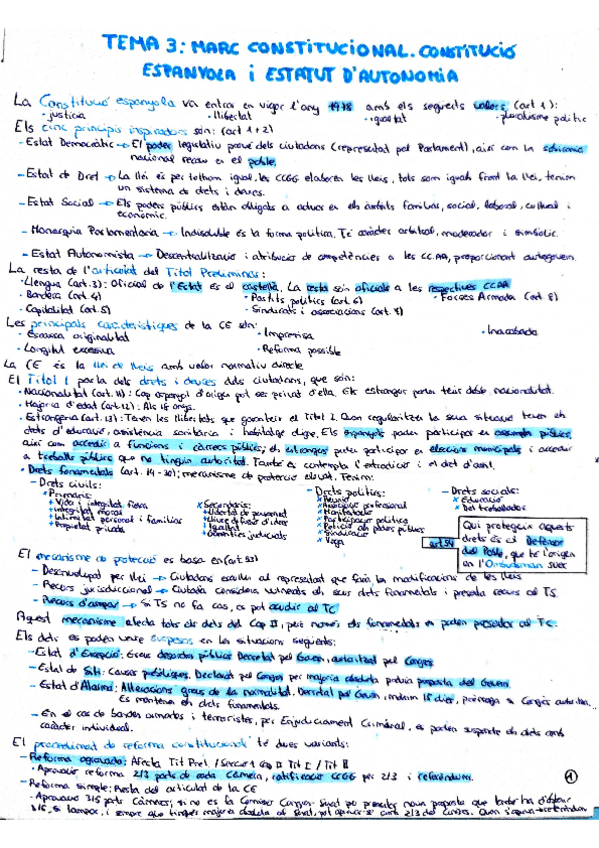 TEMA 3: MARC CONSTITUCIONAL. CONSTITUCIÓ
ESPANYOLA I ESTATUT D'AUTONOMIA
La Constitució espanyola va entrar en vigor l'any 1978 amb els següents valors (art 1):
· justícia · llibertat · igualtat · pluralisme polític
Els cinc principis inspiradors són: (art 1+2)
- Estat Democràtic → El poder legislatiu prové dels ciutadans (representat pel Parlament), així com la sobirania
nacional recau en el poble.
- Estat de Dret → La llei és per tothom igual, les CCGG elaboren les lleis, tots som iguals front la llei, tenim
un sistema de drets i deures.
- Estat Social → Els poders públics estan obligats a actuar en els àmbits familiar, social, laboral, cultural i
econòmic.
- Monarquia Parlamentària → Indisoluble és la forma política. Té caràcter arbitral, moderador i simbòlic.
- Estat Autonomista → Descentralització i atribució de competències a les CCAA, proporcionant autogovern.
La resta de l'articulat del Títol Preliminar:
· Llengua (art.3): Oficial de l'Estat és el castellà. La resta són oficials a les respectives CCAA
· Bandera (art.4) · Partits polítics (art.6) · Forces Armada (art 8)
· Capitalitat (art.5) · Sindicats i associacions (art.7)
Les principals característiques de la CE són:
· Escassa originalitat · Imprecisa · Inacabada
· Longitud excessiva · Reforma possible
La CE és la llei de lleis amb valor normatiu directe
El Títol 1 parla dels drets i deures dels ciutadans, que són:
· Nacionalitat (art.11): Cap espanyol d'origen pot ser privat d'ella. Els estrangers poden tenir doble nacionalitat.
· Majoria d'edat (art.12): Als 18 anys.
· Estrangeria (art.13): Tenen les llibertats que garanteix el Títol 1. Quan regularitzen la seua situació tenen els
drets d'educació, assistència sanitària i habitatge digne. Els espanyols poden participar en assumptes públics,
així com accedir a funcions i càrrecs públics; els estrangers poden participar en eleccions municipals i accedir
a treballs públics que no tinguin autoritat. També es contempla l'extradició i el dret d'asil.
· Drets fonamentals (art. 14-30); mecanisme de protecció elevat. Tenim:
- Drets civils: - Drets polítics: - Drets socials:
Primaris:
* Vida i integritat física
* Integritat moral
* Intimitat personal i familiar
* Propietat privada
Secundaris:
* Llibertat de
* Lliure difusió d'idees
* Igualtat
* Garanties judicials
* Reunió
* Associació professional
* Manifestació
* Participació política
* Petició als poders públics
* Sindicació
* Vaga
* Educació
* Del treballador
art.54
Qui protegeix aquests
drets és el Defensor
del Poble, que té l'origen
en l'Ombudsman suec
El mecanisme de protecció es basa en (art 53)
- Desenvolupat per llei → Ciutadans escullen al representat que farà la modificació de les lleis
- Recurs jurisdiccional → Ciutadà considera vulnerats els seus drets fonamentals i presenta recurs al TS.
- Recurs d'empar → Si TS no fa cas, es pot acudir al TC
Aquest mecanisme afecta tots els drets del Cap II, però només els fonamentals es poden presentar al TC.
Els drets es poden veure suspesos en les situacions següents:
- Estat d'Excepció: Greus desordres públics. Decretat pel Govern, autoritzat pel Congrés
- Estat de Siti: Causes Declarat pel Congrés per majoria absoluta prèvia proposta del Govern.
- Estat d'Alarma: Alteracions greus de la normalitat. Decretat pel Govern, màxim 15 dies, pròrroga si Congrés autoritza.
Es mantenen els drets fonamentals.
- En el cas de bandes armades i terroristes, per Enjudiciament Criminal, es poden suspendre els drets amb
caràcter individual.
El procediment de reforma constitucional té dues variants:
- Reforma agreujada: Afecta Tít Prel / Secció 1 Cap II Tít I / Tít II
· Aprovació reforma 2/3 parts de cada Càmera, ratificació CCGG per 2/3 i referèndum.
- Reforma simple: Resta del articulat de la CE
· Aprovació 3/5 parts Càmeres; si no es fa Comissió Congrés-Senat per presentar nova proposta que també ha d'obtenir
3/5, si tampoc, i sempre que tingués majoria absoluta al Senat, pot aprovar-se amb 2/3 del Congrés.
1